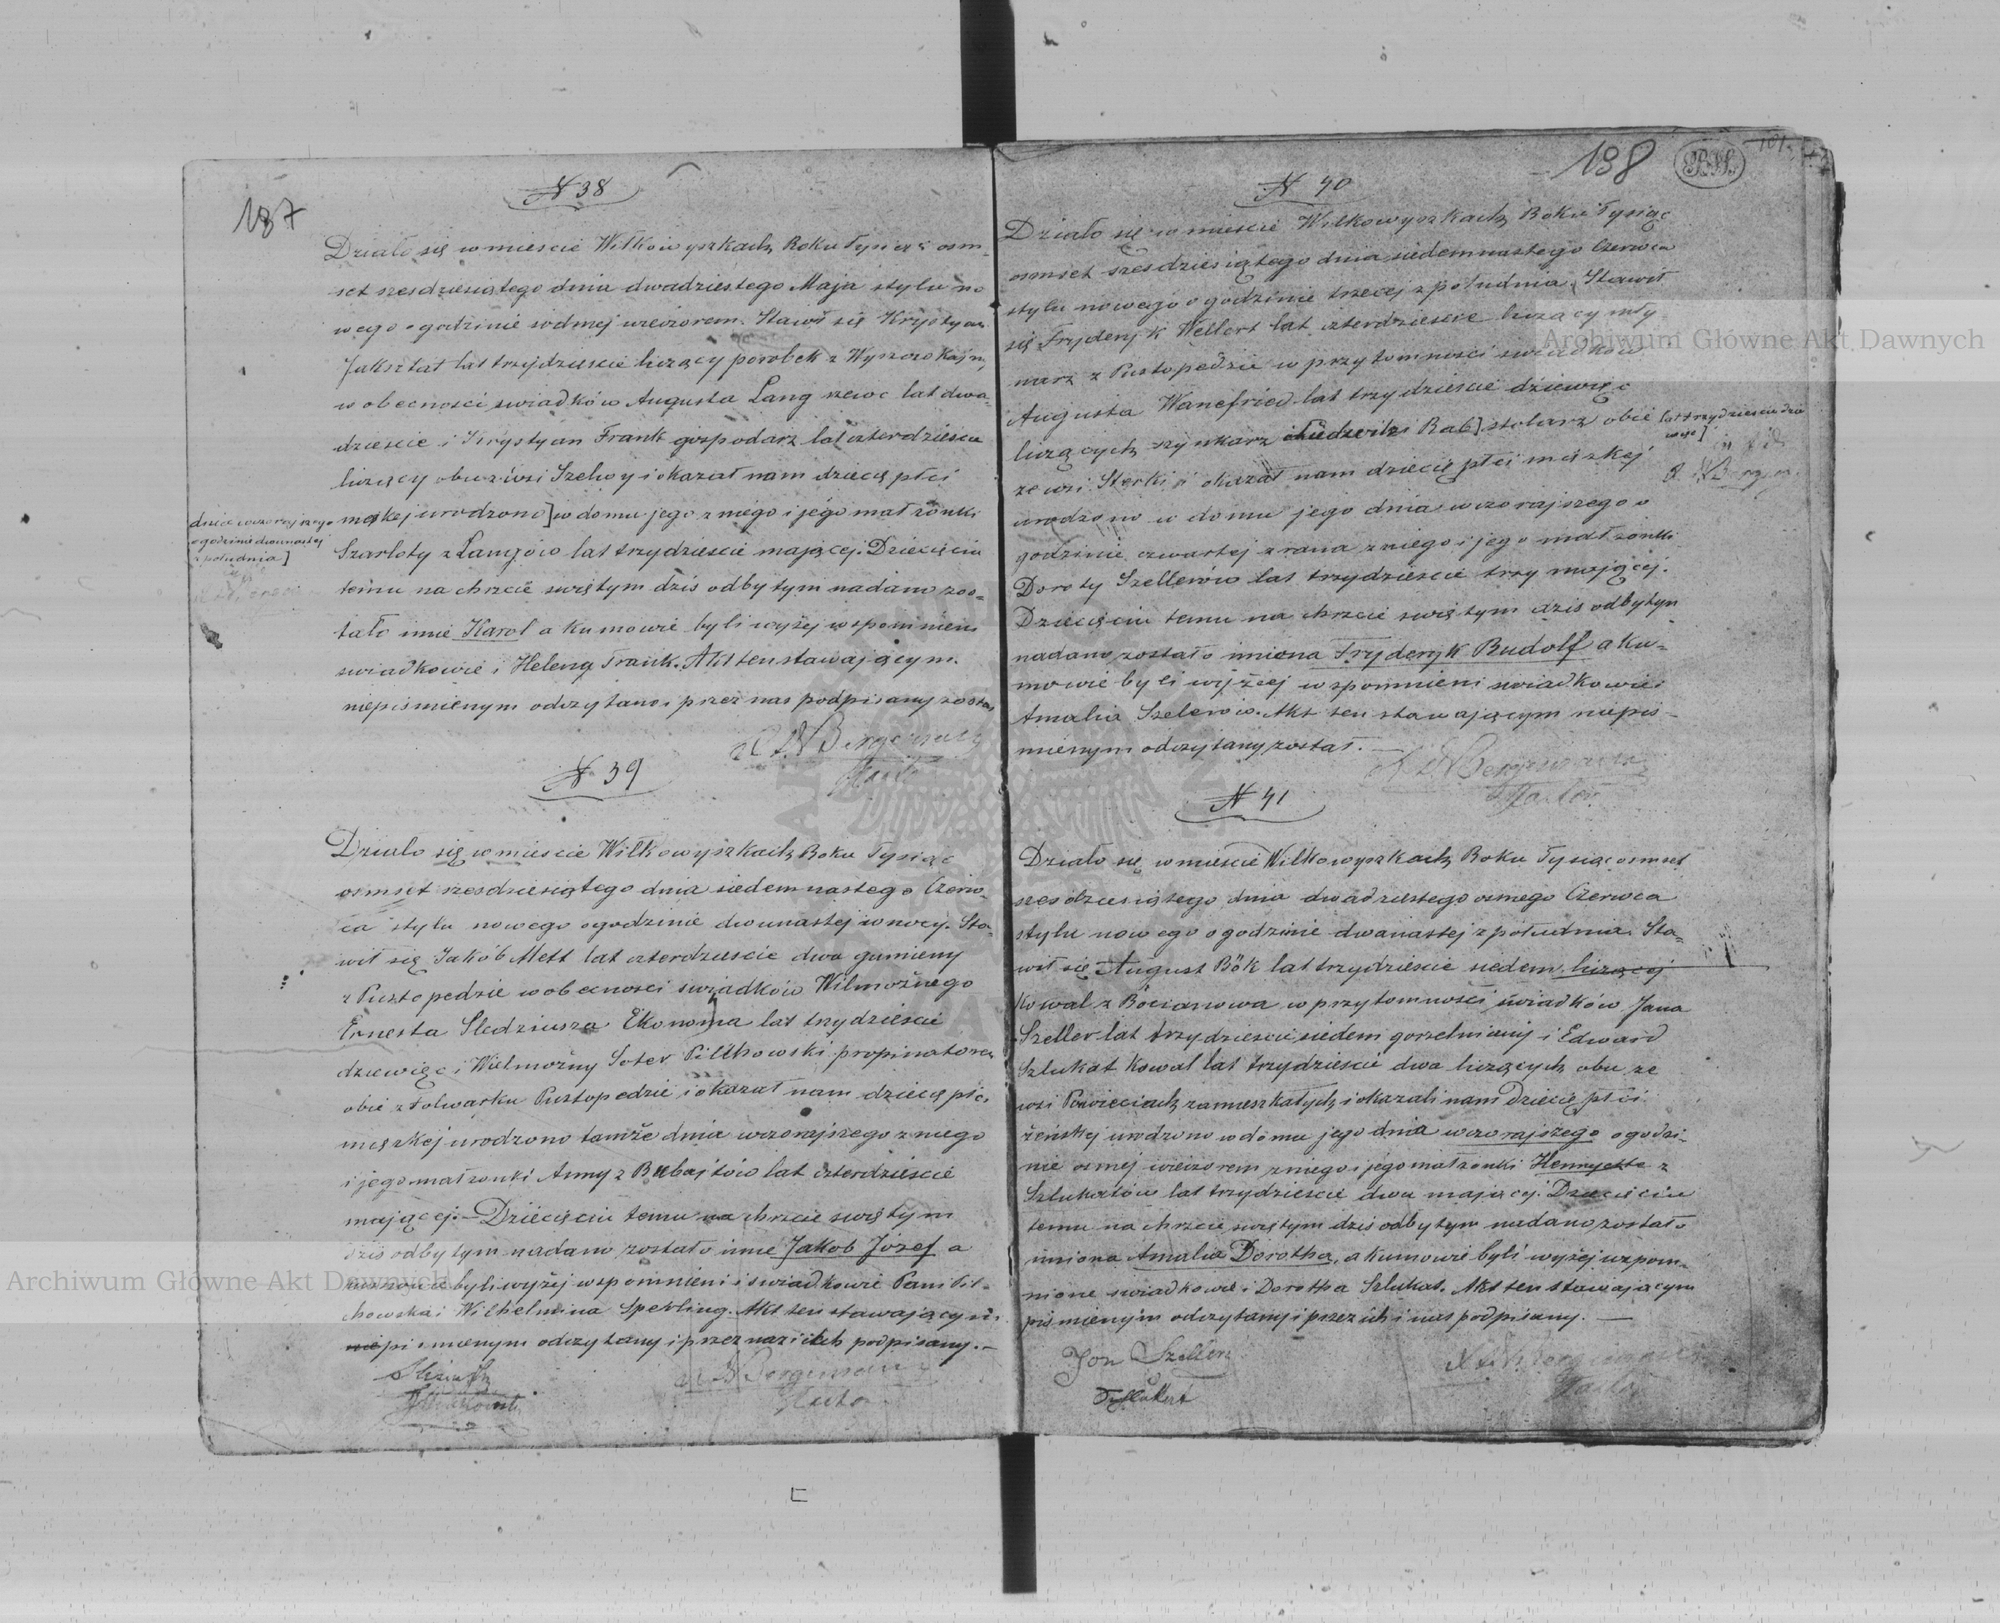 187
N 38
Działo się w mieście Wiłkowyszkach Roku Tysiąc osm-
set szesdziesiątego dnia dwadziestego Maja stylu no
wego o godzinie siodmej wieczorem. Stawił się Krystyan
Jaksztat lat trzydzieście liczący parobek z
w obecności swiadków Augusta Lang szewc lat dwa-
dzieście i Krystyan Frank gospodarz lat czterdzieście
liczący obu z wsi Szelwy i okazał nam dziecię płci
męskej urodzono] w domu jego z niego i jego małżonki
dnia wczorajszego
o godzinie dwunastej
z południa]
Szarloty z Langów lat trzydzieście mającej. Dziecięciu
temu na chrzcie swiętym dziś odbytym nadano zos-
tało imie Karol a kumowie byli wyżej wspomnieni
swiadkowie i Helena Frank. Akt ten stawającym
niepismienym odczytano i przez nas podpisany został
Bergmann
Pastor
N 39
Działo się w mieście Wiłkowyszkach Roku Tysiąc
osmset szesdziesiątego dnia siedemnastego Czerw-
ca stylu nowego o godzinie dwunastej w nocy. Sta-
wił się Jakób Mett lat czterdzieście dwa gumieny
z Pustopedzie w obecności swiadków Wilmożnego
Ernesta Sledziusza Ekonoma lat trzydzieście
dziewięć i Wielmożny Soter Pilchowski propinatora
obié z Folwarku Pustopedzie i okazał nam dziecię płci
męzkej urodzono tamże dnia wczorajszego z niego
i jego małżonki Anny z Bubajtów lat czterdzieście
mającej. – Dziecięciu temu na chrzcie swiętym
dziś odbytym nadano zostało imie Jakob Józef a
kumowie byli wyżej wspomnieni i swiadkowie Pani Pil-
chowska i Wilhelmina Sperling. Akt ten stawającym
niepismienym odczytany i przez nas i ich podpisany. –
Bergmann
Pastor
198
N 40
Działo się w mieście Wiłkowyszkach Roku Tysiąc
osmset szesdziesiątego dnia siedemnastego Czerwca
stylu nowego o godzinie trzecej z południa. Stawił
się Fryderyk Wellert lat czterdzieście liczący mły-
narz z Pustopedzie w przytomności swiadków
Augusta Wanefried lat trzydzieście dziewięć
liczących szynkarz i Rab] stolarz obie
lat trzydzieście dzie
więć]
ze wsi Sterki i okazał nam dziecię płci męzkej
urodzono w domu jego dnia wczorajszego o
godzinie czwartej z rana z niego i jego małżonki
Doroty Szellerów lat trzydzieście trzy mającej.
Dziecięciu temu na chrzcie swiętym dziś odbytym
nadano zostało imiona Fryderyk Rudolf a ku-
mowie byli wyżej wspomnieni swiadkowie i
Amalia Szelerow. Akt ten stawającym niepis-
mienym odczytany został. –
Bergmann
Pastor
N 41
Działo się w mieście Wiłkowyszkach Roku Tysiąc osmset
szesdziesiątego dnia dwadziestego osmego Czerwca
stylu nowego o godzinie dwanastej z południa. Sta-
wił się August Bök lat trzydzieście siedem liczącej
kowal z Bocianowa w przytomności swiadków Jana
Szeller lat trzydzieście siedem gorzelniany i Edward
Szlukat kowal lat trzydzieście dwa liczących obu ze
wsi Powieciach zamieszkałych i okazali nam dziecię płci
żeńskej urodzono w domu jego dnia wczorajszego o godzi-
nie osmej wieczorem z niego i jego małżonki Henryette z
Szlukatów lat trzydzieście dwa mającej. Dziecięciu
temu na chrzcie swiętym dziś odbytym nadano zostało
imiona Amalia Dorotha, a kumowie byli wyżej wzpom-
nione swiadkowie i Dorotha Szlukat. Akt ten stawającym
pismienym odczytany i przez ich i nas podpisany. –
Jon Szeller
Bergmann
Pastor
Archiwum Główne Akt Dawnych
Archiwum Główne Akt Dawnych